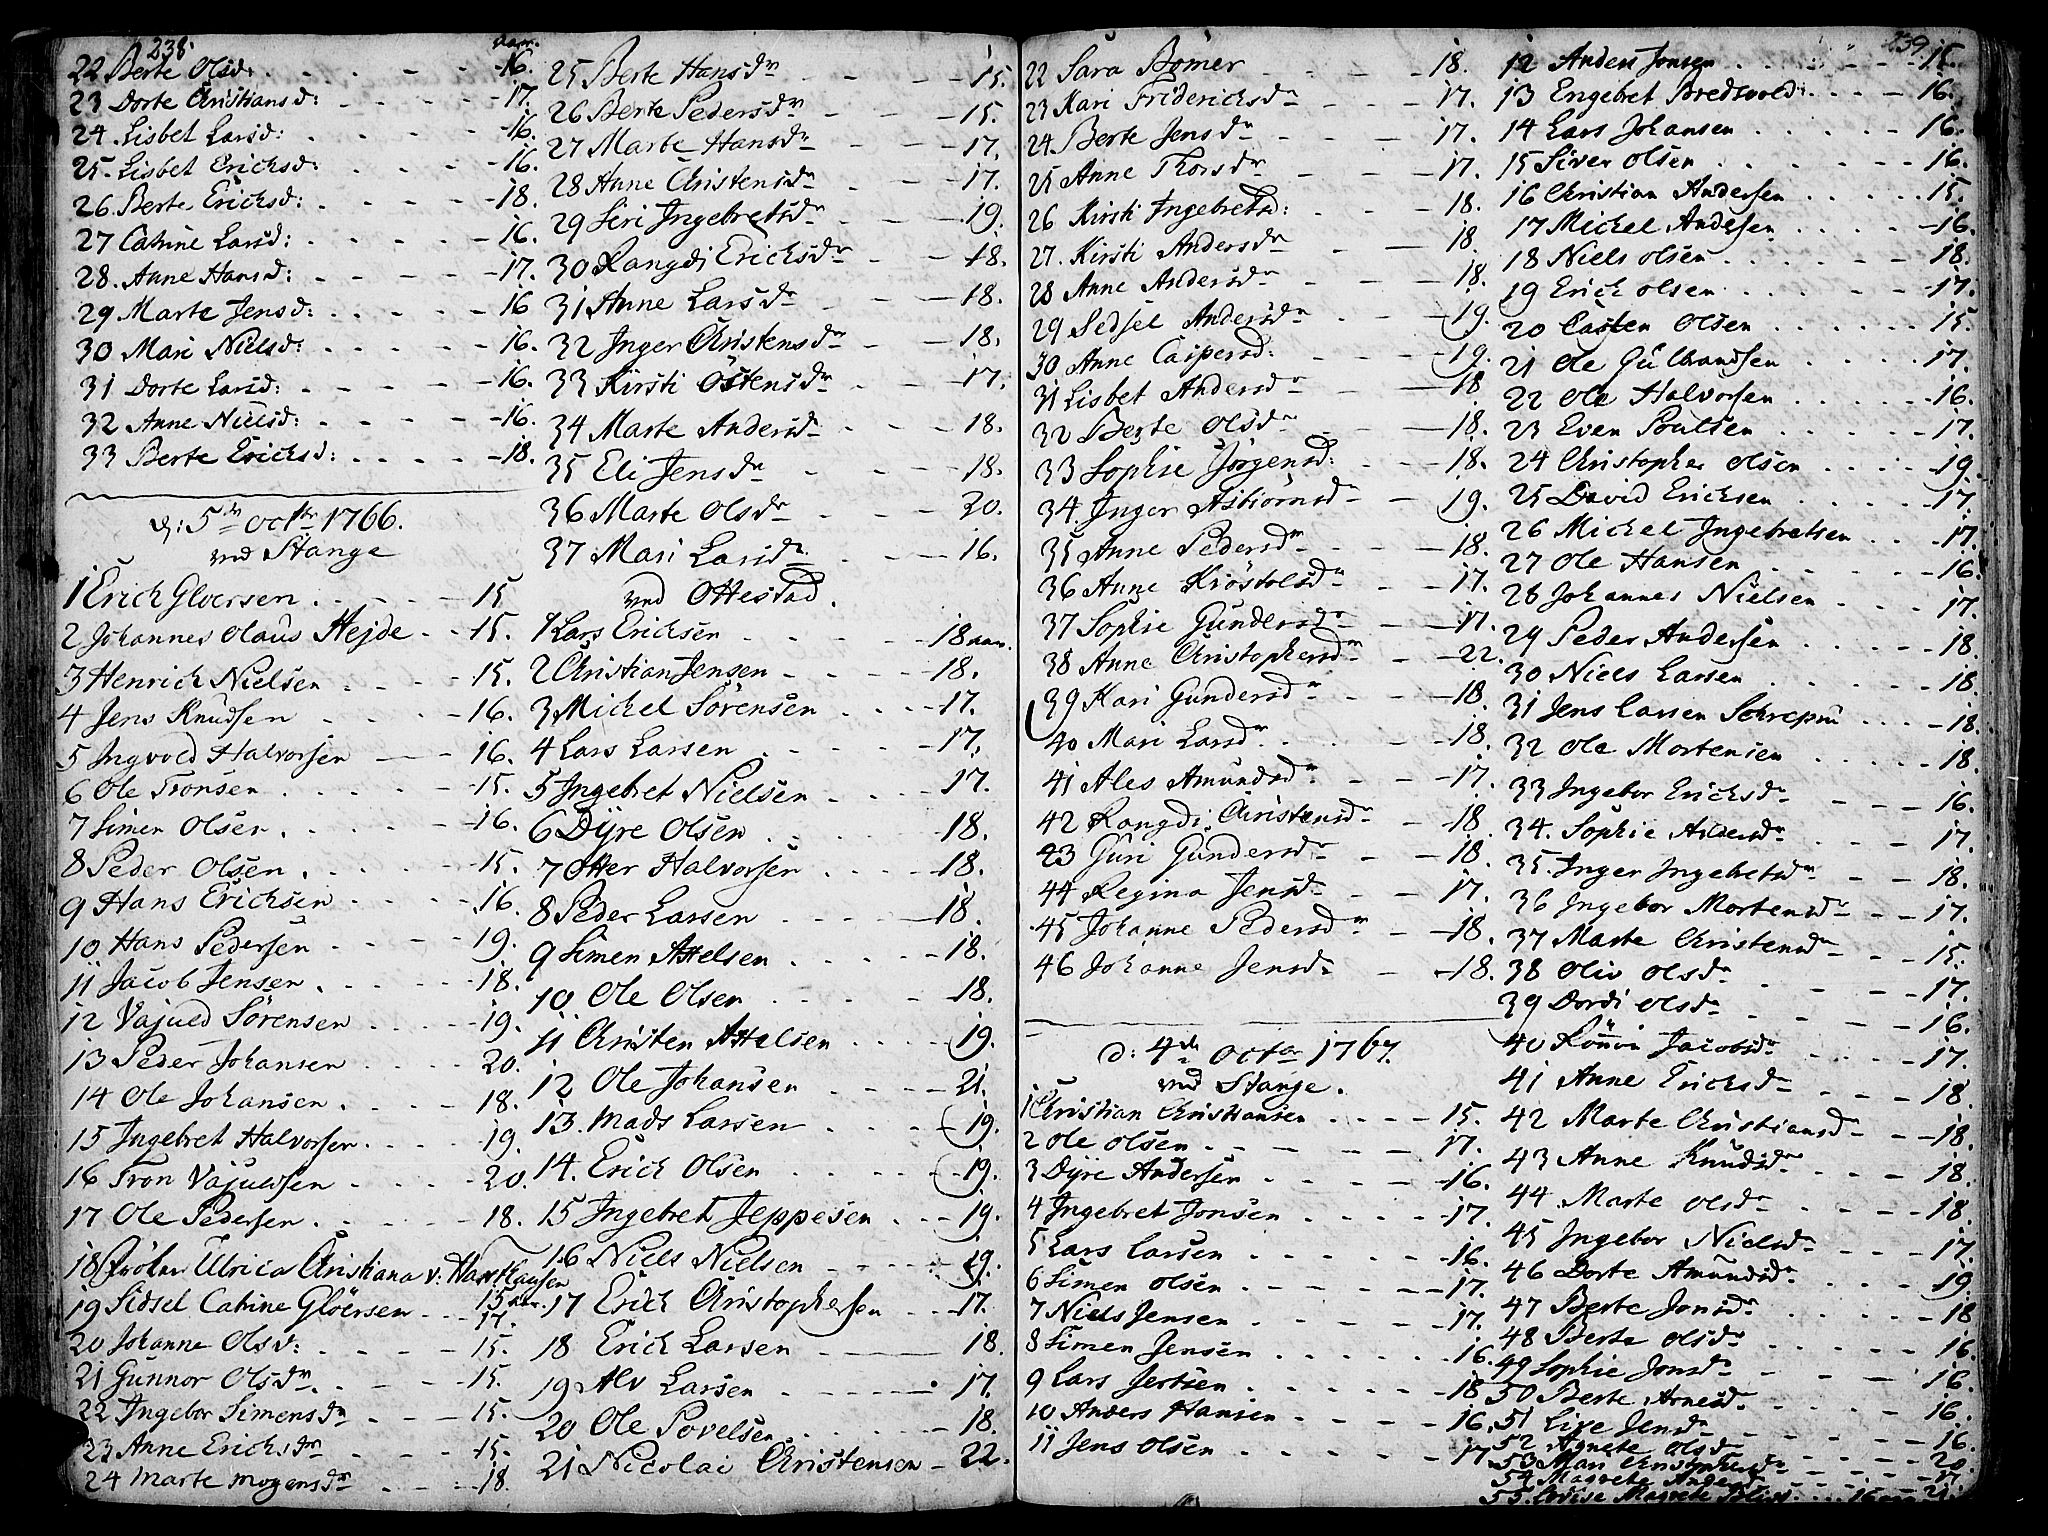 238.
aar.
22 Berte Olsd: - - - 16.
23 Dorte Christiansd: - - - 17.
24. Lisbet Larsd: - - - 16.
25. Lisbet Ericksd: - - - 16.
26. Berte Ericksd: - - - 18.
27 Catrine Larsd: - - - 16.
28. Anne Hansd: - - - 17.
29 Marte Jensd: - - - 16
30 Mari Nielsd: - - - 16.
31 Dorte Larsd: - - - 16.
32 Anne Nielsd: - - - 16.
33 Berte Ericksd: - - - 18.
d: 5te octbr 1766.
ved Stange
1 Erich Gloersen - - - 15
2 Johannes Olaus Hejde - - 15.
3 Henrich Nielsen - - - 15.
4 Jens Knudsen - - - 16.
5 Ingvold Halvorsen - - 16.
6 Ole Tronsen - - - 15.
7 Simen Olsen - - - 16.
8 Peder Olsen - - - 15.
9 Hans Ericksen - - - 16.
10 Hans Pedersen - - - 19.
11 Jacob Jensen - - - 18.
12 Vajued Sörensen - - - 19.
13 Peder Johansen - - - 20.
14 Ole Johansen - - - 18.
15 Ingebret Halvorsen - - - 19.
16 Tron Vajuedsen - - - 20.
17 Ole Pedersen - - - 18.
18 Ulrica Christiana v: Haxthausen
15 aar.
19 Sidsel Catrine Gloërsen - - - 17.
20 Johanne Olsd: - - - 15.
21 Gunnor Olsdr - - - 15.
22 Ingebor Simensdr - - - 15.
23 Anne Ericksdr - - - 15.
24 Marte Mogensdr - - - 18.
25 Berte Hansdr - - - 15.
26 Berte Pedersdr - - - 15.
27 Marte Hansdr - - - 17.
28 Anne Christensdr - - - 17.
29 Siri Ingebretsdr - - - 19.
30 Rangdi Ericksdr - - - 18.
31 Anne Larsdr - - - 18.
32 Inger Christensdr - - - 18.
33 Kirsti Östensdr - - - 17.
34 Marte Andersdr - - - 18.
35 Eli Jensdr - - - 18.
36 Marte Olsdr - - - 20.
37 Mari Larsdr - - - 16.
ved Ottestad.
1 Lars Ericksen - - - 18 aar.
2 Christian Jensen - - - 18.
3 Michel Sörensen - - - 17.
4 Lars Larsen - - - 17.
5 Ingebret Nielsen - - - 17.
6 Dÿre Olsen - - - 18.
7 Otter Halvorsen - - - 18.
8 Peder Larsen - - - 18.
9 Simen Attelsen - - - 18.
10 Ole Olsen - - - 18.
11 Christen Attelsen - - - 19.
12 Ole Johansen - - - 21.
13. Mads Larsen - - - 19.
14. Erich Olsen - - - 19.
15 Ingebret Jeppesen - - - 19.
16 Niels Nielsen - - - 19.
17 Erich Christophersen - - - 17.
18 Erich Larsen - - - 18.
19 Alv Larsen - - - 17.
20 Ole Povelsen - - - 18.
21 Nicolai Christensen - 22.
239
22 Sara Bömer - - - 18.
23 Kari Friderichsdr - - - 17.
24 Berte Jensdr - - - 17.
25 Anne Thorsdr - - - 17.
26 Kirsti Ingebretsd: - - - 18.
27. Kirsti Andersdr - - - 18
28 Anne Andersdr - - - 18.
29 Sedsel Andersdr - - - 19.
30 Anne Caspersd: - - - 19.
31 Lisbet Andersdr - - - 18
32 Berte Olsdr - - - 18.
33 Sophie Jörgensd: - - - 18.
34. Inger Asbiörnsdr - - 19.
35 Anne Pedersdr - - - 18.
36 Anne Kröstolsdr - - - 17.
37 Sophie Gundersdr - - - 17.
38 Anne Christophersdr - - 22.
39 Kari Gundersdr - - - 18.
40 Mari Larsdr - - - 18.
41 Ales Amundsdr - - - 17.
42 Rangdi Christensdr - - 18.
43 Guri Gundersdr - - - 18.
44 Regina Jensdr - - - 17.
45 Johanne Pedersdr - - 18.
46 Johanne Jensdr - - - 18.
d: 4de octbr 1767.
ved Stange.
1 Christian Christiansen - - - 15.
2 Ole Olsen - - - 17.
3 Dÿre Andersen - - - 16.
4 Ingebret Jonsen - - - 17.
5 Lars Larsen - - - 16.
6 Simen Olsen - - - 17.
7 Niels Jensen - - - 17.
8 Simen Jensen - - - 16.
9 Lars Jertsen - - - 18
10 Anders Hansen - - - 16.
11 Jens Olsen - - - 17
12 Anders Jonsen - - - 15.
13 Engebret Bredsvold: - - - 16.
14 Lars Johansen - - - 16.
15 Siver Olsen - - - 16.
16 Christian Andersen - - - 15.
17 Michel Andersen - - - 16.
18 Niels Olsen - - - 18.
19 Erich Olsen - - - 17.
20 Casten Olsen - - - 15.
21 Ole Gulbrandsen - - - 17.
22 Ole Halvorsen - - - 16.
23 Even Poulsen - - - 17.
24 Christopher Olsen - - - 19.
25 David Ericksen - - - 17.
26 Michel Ingebretsen - - - 17.
27 Ole Hansen - - - 16.
28 Johannes Nielsen - - - 17.
29 Peder Andersen - - - 18.
30 Niels Larsen - - - 18.
31 Jens Larsen - - - 18.
32 Ole Mortensen - - - 18.
33 Ingebor Ericksdr - - - 16.
34. Sophie Andersdr - - - 17.
35. Inger Ingebretsdr - - - 18.
36 Ingebor Mortensdr - - - 17.
37 Marte Christensdr - - - 15.
38 Oliv Olsdr - - - 17.
39 Dordi Olsdr - - - 16.
40 Jacobsdr - - - 17.
41 Anne Ericksdr - - - 18.
42 Marte Christiansdr - - 18.
43 Anne Knudsdr - - - 18.
44 Marte Olsdr - - - 18.
45 Ingebor Nielsdr - - - 17.
46 Dorte Amundsdr - - - 19.
47 Berte Jonsdr - - - 18
48 Berte Olsdr - - - 16.
49 Sophie Jonsdr - - - 16.
50 Berte Arnesdr - - - 16.
51 Live Jensdr - - - 16.
52 Agnete Olsdr - - - 20
53 Mari Christophersdr - - - 17
54 Magrete - - - 21.
55. Magrete